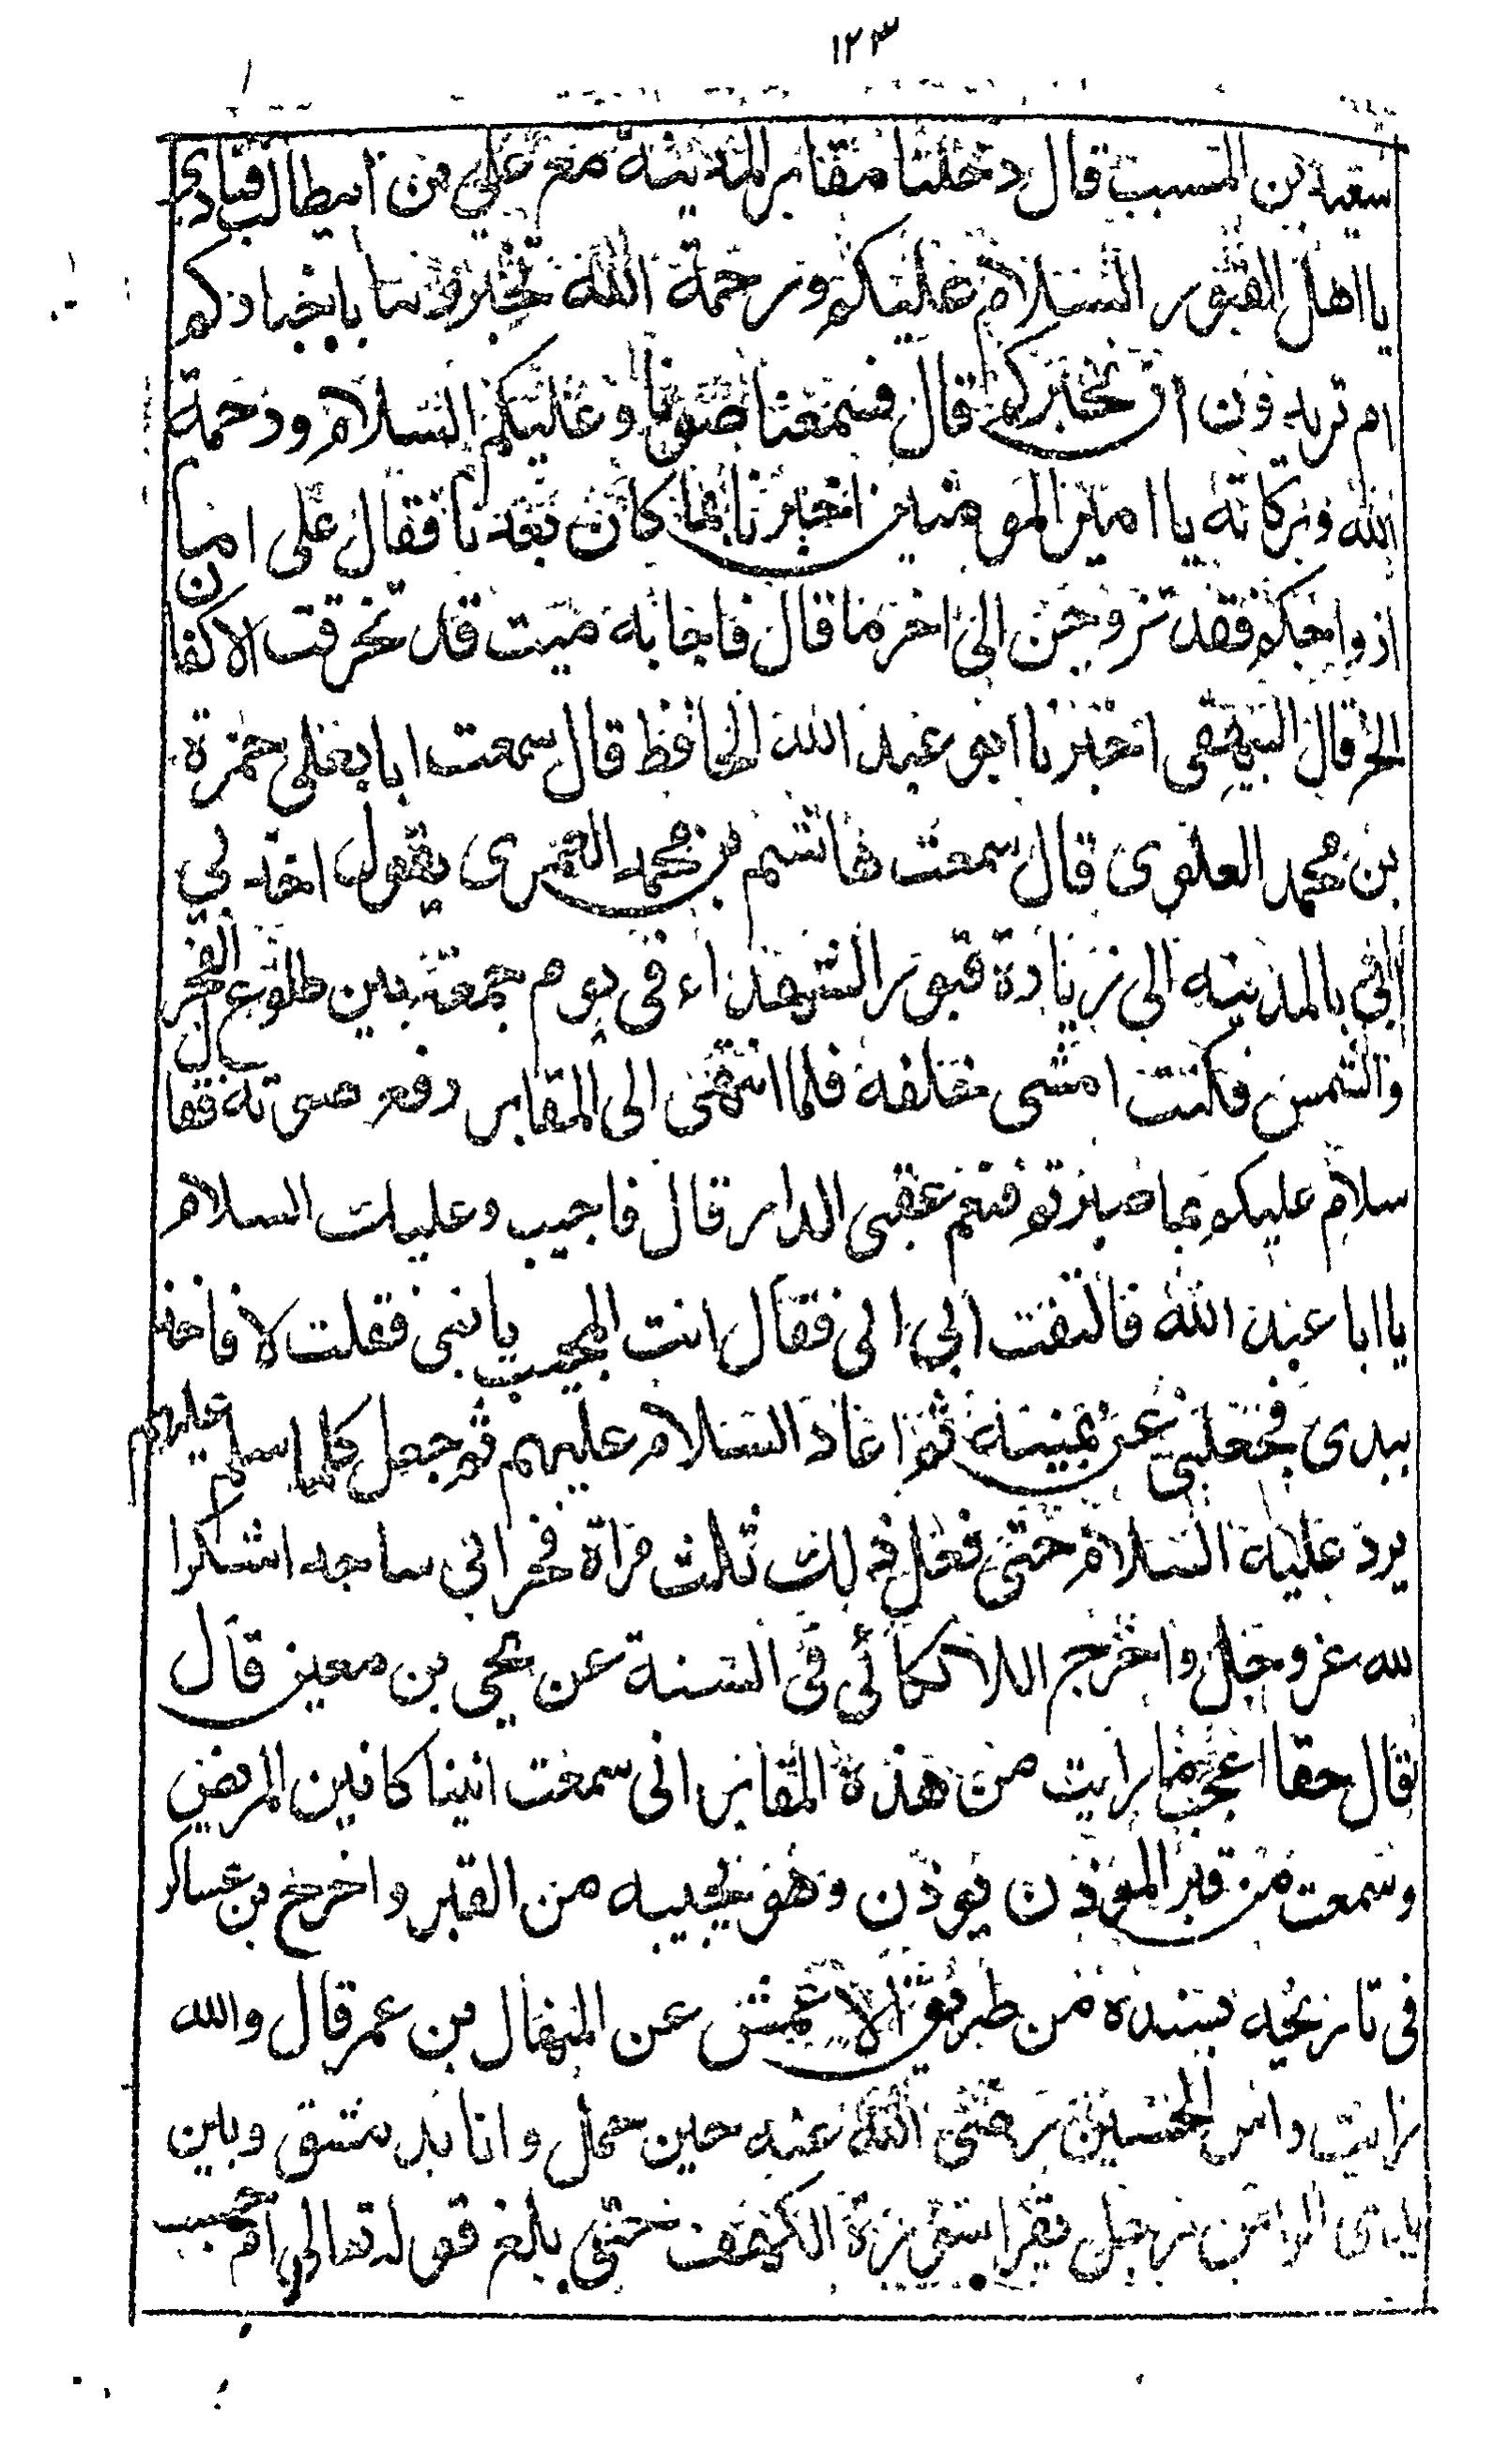 ١٢٣
سعيد بن المسيب قال دخلنا مقابر المدينة مع علي بن ابيطالب فنادى
يا اهل القبور السلام عليكم ورحمة الله تخبرونا باخباركم
ام تريدون ان نخبركم قال فسمعنا صوتا وعليكم السلام ورحمة
الله وبركاته يا امير المومنين اخبرنا بما كان بعدنا فقال على اما
ازواجكم فقد تزوجن الى اخر ما قال فاجابه ميت قد تخرقت الاكفان
الخ قال البيهقى اخبرنا ابو عبد الله الحافظ قال سمعت ابا يعلى حمزة
بن محمد العلوى قال سمعت هاشم بن محمد العمرى يقول اخذ لي
ابي بالمدينه الى زيارة قبور الشهداء فى يوم جمعة بين طلوع الفجر
والشمس فكنت امشى خلفه فلما انتهى الى المقابر رفع صوته فقال
سلام عليكم بما صبرتم فنعم عقبى الدار قال فاجيب وعليك السلام
يا ابا عبد الله فالتفت ابي الى فقال انت المجيب يا بنى فقلت لا فاخذ
بيدى فجعلنى عن يمينه ثم اعاد السلام عليهم ثم جعل كلما سلم عليهم
يرد عليه السلام حتى فعل ذلك ثلث مراة فخر ابى ساجدا شكرا
لله عز وجل واخرج اللالكائي فى السنة عن يحي بن معين قال
قال حقا اعجب ما رايت من هذه المقابر انى سمعت انينا كانين المريض
وسمعت من قبر الموذن يوذن وهو يجيبه من القبر واخرج بن عساكر
فى تاريخه بسنده من طريق الاعمش عن المنهال بن عمر قال والله
رايت راس الحسين رضى الله عنه حين حمل وانا بدمشق وبين
يدى الراس رجل يقرا سورة الكهف حتى بلغ قوله تعالى ام حسب